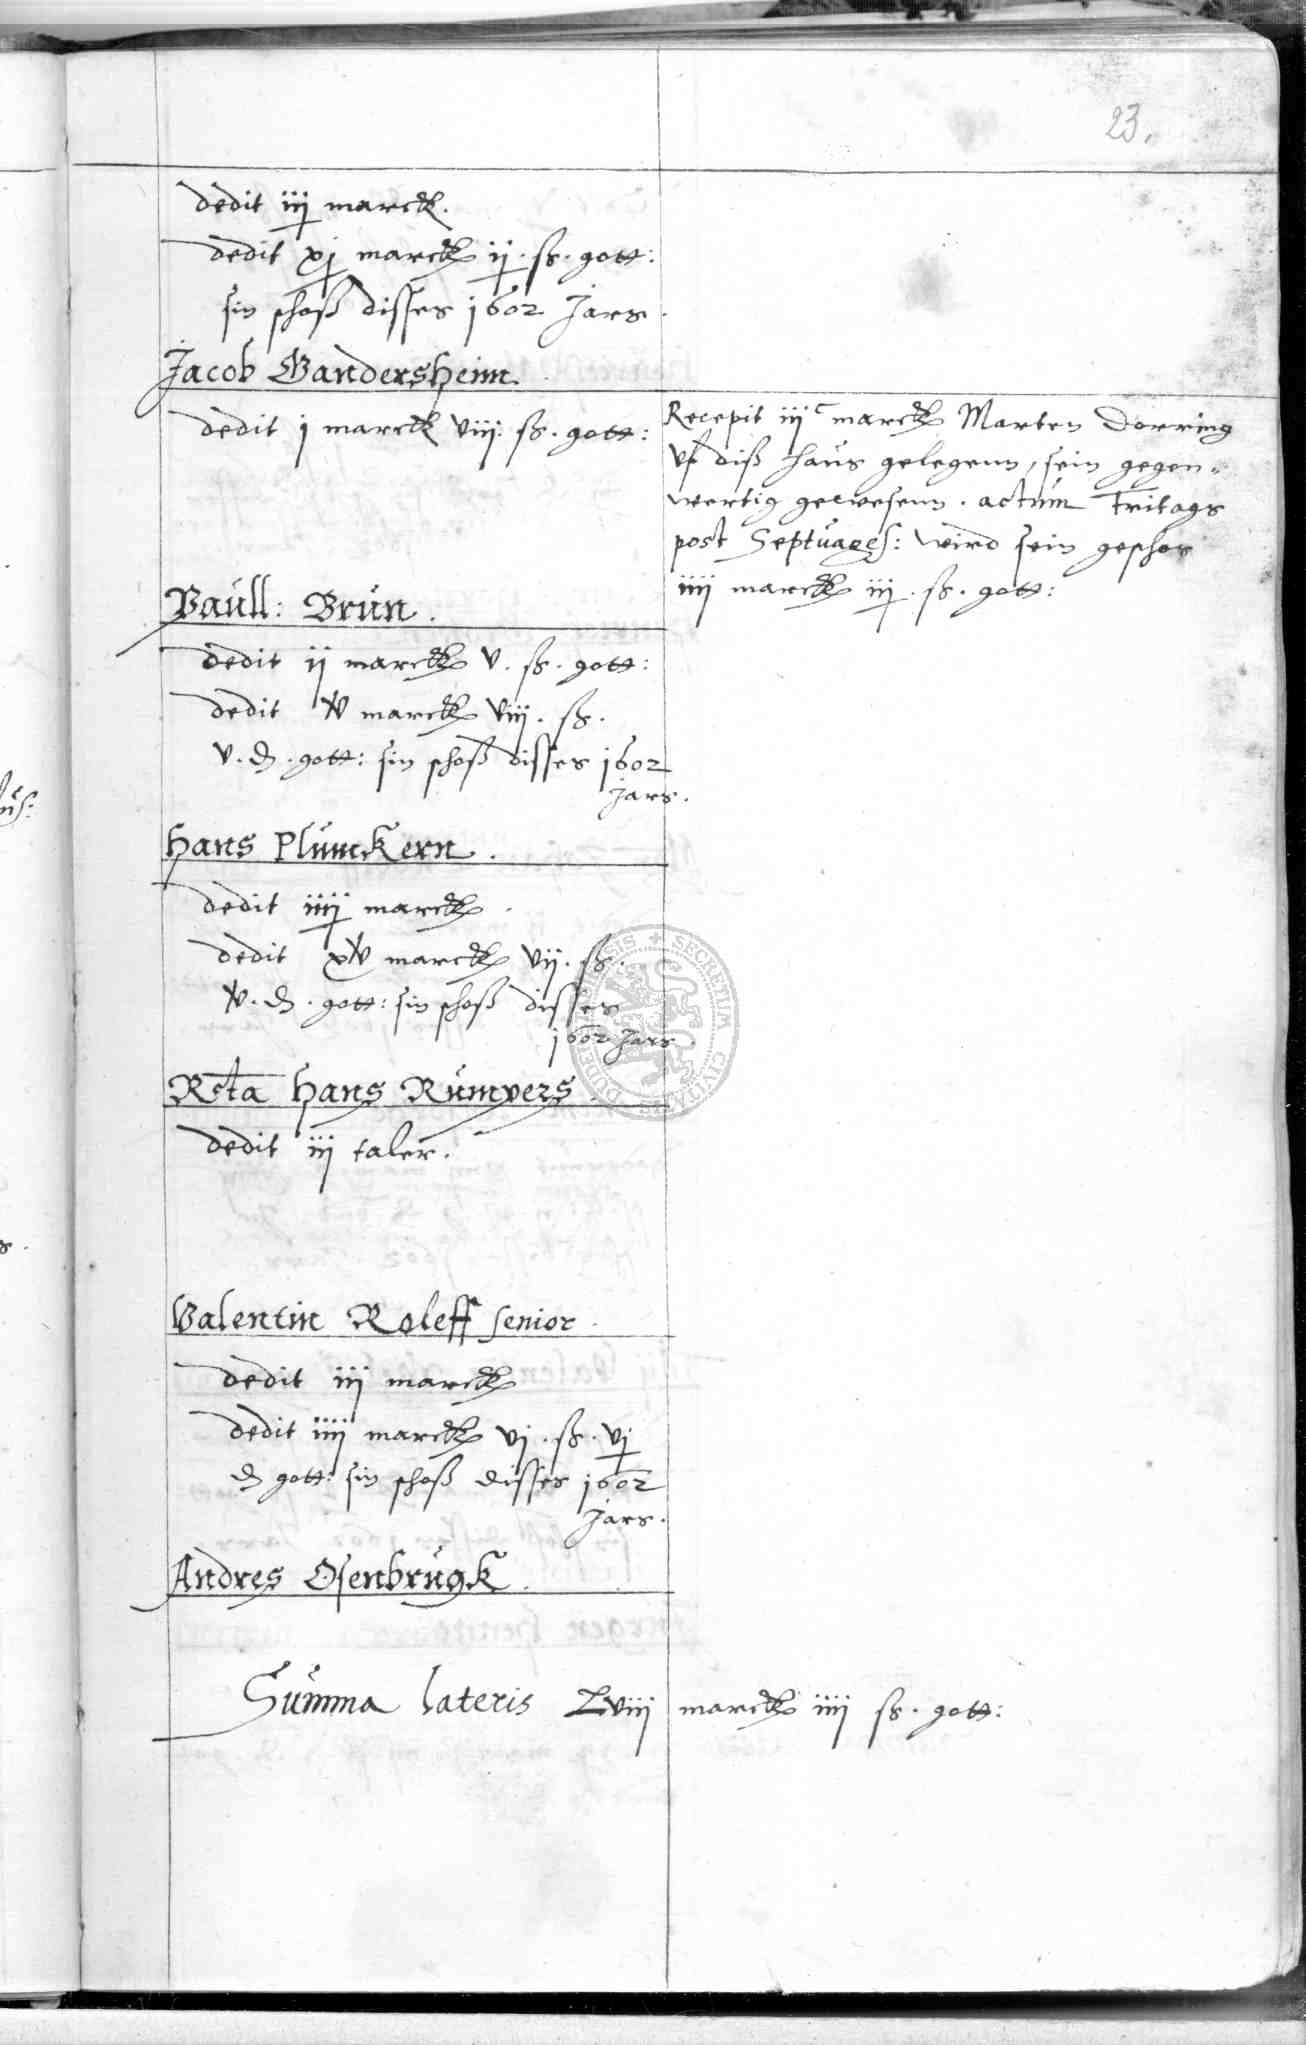 23.
dedit iij marck.
dedit xj marck ij. ß. gott:
sin schoß disses 1602 Jars.
Jacob Gandersheim.
dedit j marck viij. ß. gott:
Recepit iijᶜ marck Marten Dorring
uf diß haus gelegenn, sein gegen-
wertig gewesenn. actum Fritags
post Septuages: wird sein geschos
iiij marck iij. ß. gott:
Paull: Brun.
dedit ij marck v. ß. gott:
dedit v marck viij. ß.
v. d. gott: sin schoß disses 1602
Jars.
Hans Plumckern.
dedit iiij marck
dedit xv marck vij. ß.
v. d. gott: sin schoß disses
1602 Jars.
Rcta Hans Rumpers.
dedit iij taler.
Valentin Roleff senior.
dedit iij marck
dedit iiij marck vj. ß. vj
d gott: sin schoß disses 1602
Jars.
Andres Osenbrugk.
Summa lateris Lviij marck iiij ß. gott:
SECRETUM CIVITATIS